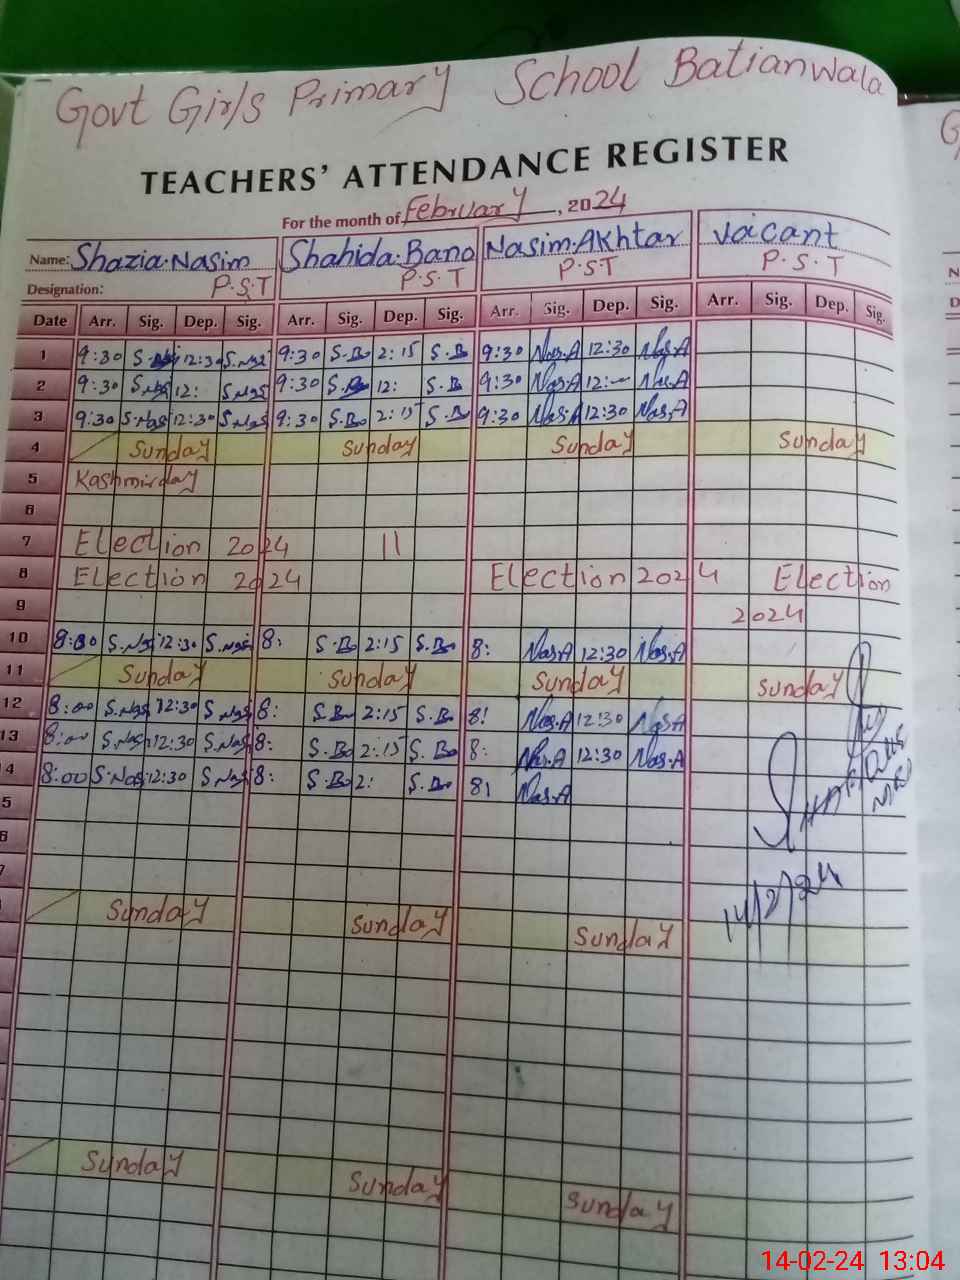 Govt Girls Primary School Batianwala
TEACHERS' ATTENDANCE REGISTER
For the month of February, 2024
Name: Shazia.Nasim Shahida.Bano Nasim.Akhtar Vacant
Designation: P.S.T P.S.T P.S.T P.S.T
Date Arr. Sig. Dep. Sig. Arr. Sig. Dep. Sig. Arr. Sig. Dep. Sig. Arr. Sig. Dep. Sig.
1 9:30 12:30 S.Nas 9:30 S.B 2:15 S.B 9:30 Nas.A 12:30 Nas.A
2 9:30 S.Nas 12: S.Nas 9:30 12: S.B 9:30 Nas.A 12:- Nas.A
3 9:30 S.Nas 12:30 S.Nas 9:30 S.Bo 2:15 S.Bo 9:30 Nas.A 12:30 Nas.A
4 Sunday Sunday Sunday Sunday
5 Kashmirday
6
7 Election 2024 11
8 Election 2024 Election 2024 Election
9 2024
10 8:30 S.Nas 12:30 S.Nas 8: S.Bo 2:15 S.Bo 8: Nas.A 12:30 Nas.A
11 Sunday Sunday Sunday Sunday
12 8:00 S.Nas 12:30 S.Nas 8: S.Bo 2:15 S.Bo 8: Nas.A 12:30 Nas.A
13 8:00 S.Nas 12:30 S.Nas 8: S.Bo 2:15 S.Bo 8: Nas.A 12:30 Nas.A
4 8:00 S.Nas 12:30 S.Nas 8: S.Bo 2: S.Bo 8: Nas.A
5
6
7
14/2/24
Sunday Sunday Sunday
Sunday Sunday Sunday
14-02-24 13:04